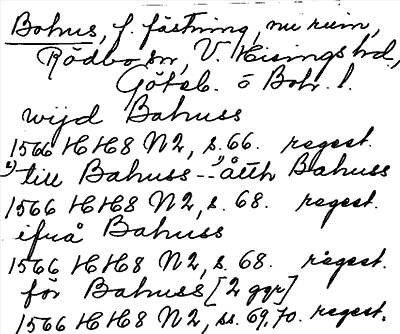 Bohus, f. fästning, nu ruin,
Rödbo sn, V. Hisings hd,
Göteb. o Boh. l.
wijd Bahuss
1566 HH8 N2, s. 66. regest.
2) till Bahuss -- 1) åtth Bahuss
1566 HH8 N2, s. 68. regest.
ifrå Bahuss
1566 HH8 N2, s. 68. regest.
för Bahuss [2 ggr]
1566 HH8 N2, ss. 69, 70. regest.